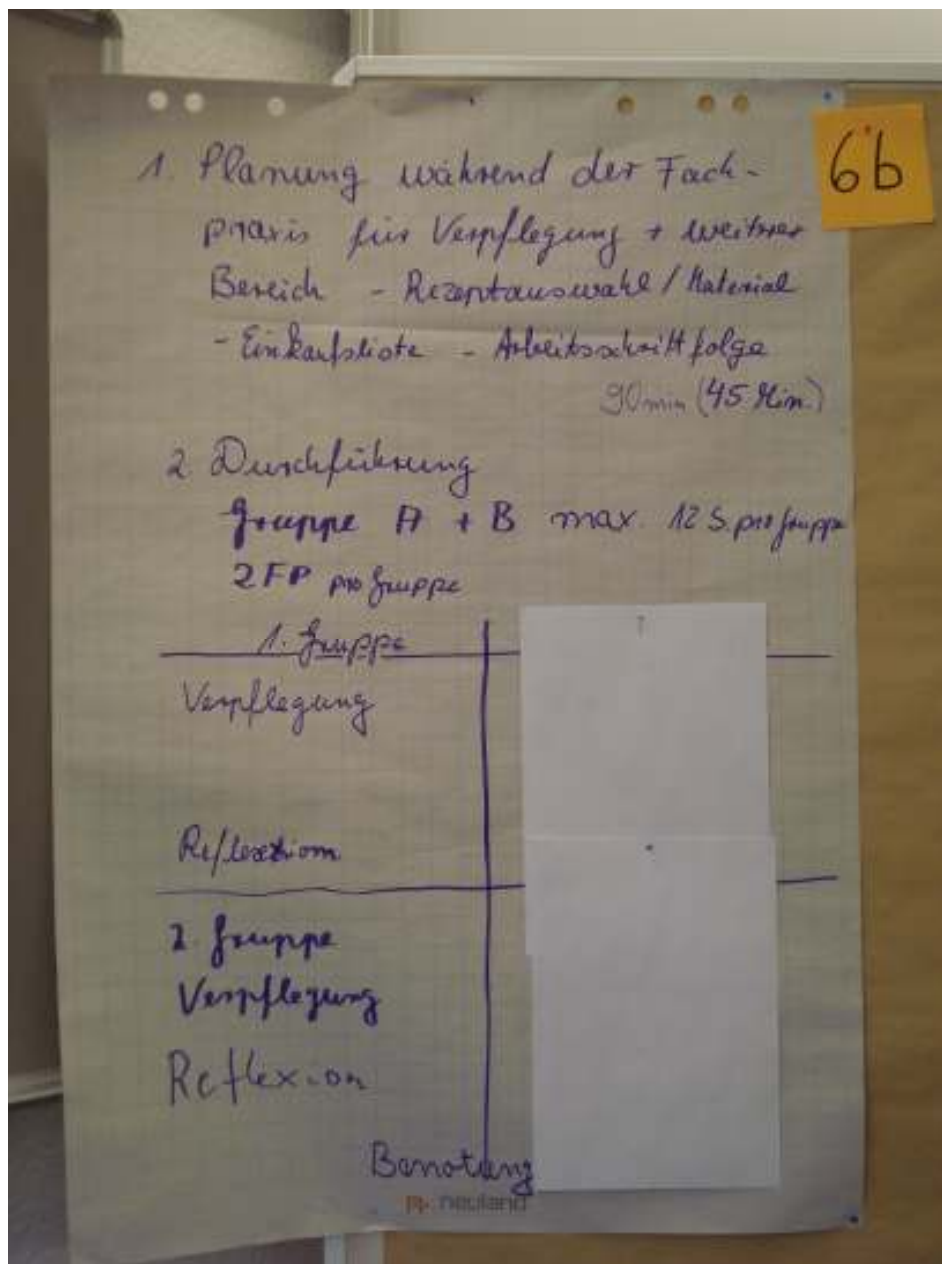 6b
1. Planung während der Fach-
praxis für Verpflegung + weitrer
Bereich - Rezeptauswahl / Material
- Einkaufsliste - Arbeitsschrittfolge
90min (45 Min.)
2 Durchführung
Gruppe A + B max. 12 S. pro Gruppe
2 FP pro Gruppe
1. Gruppe
Verpflegung
Reflexion
2. Gruppe
Verpflegung
Reflexion
Benotung
neuland